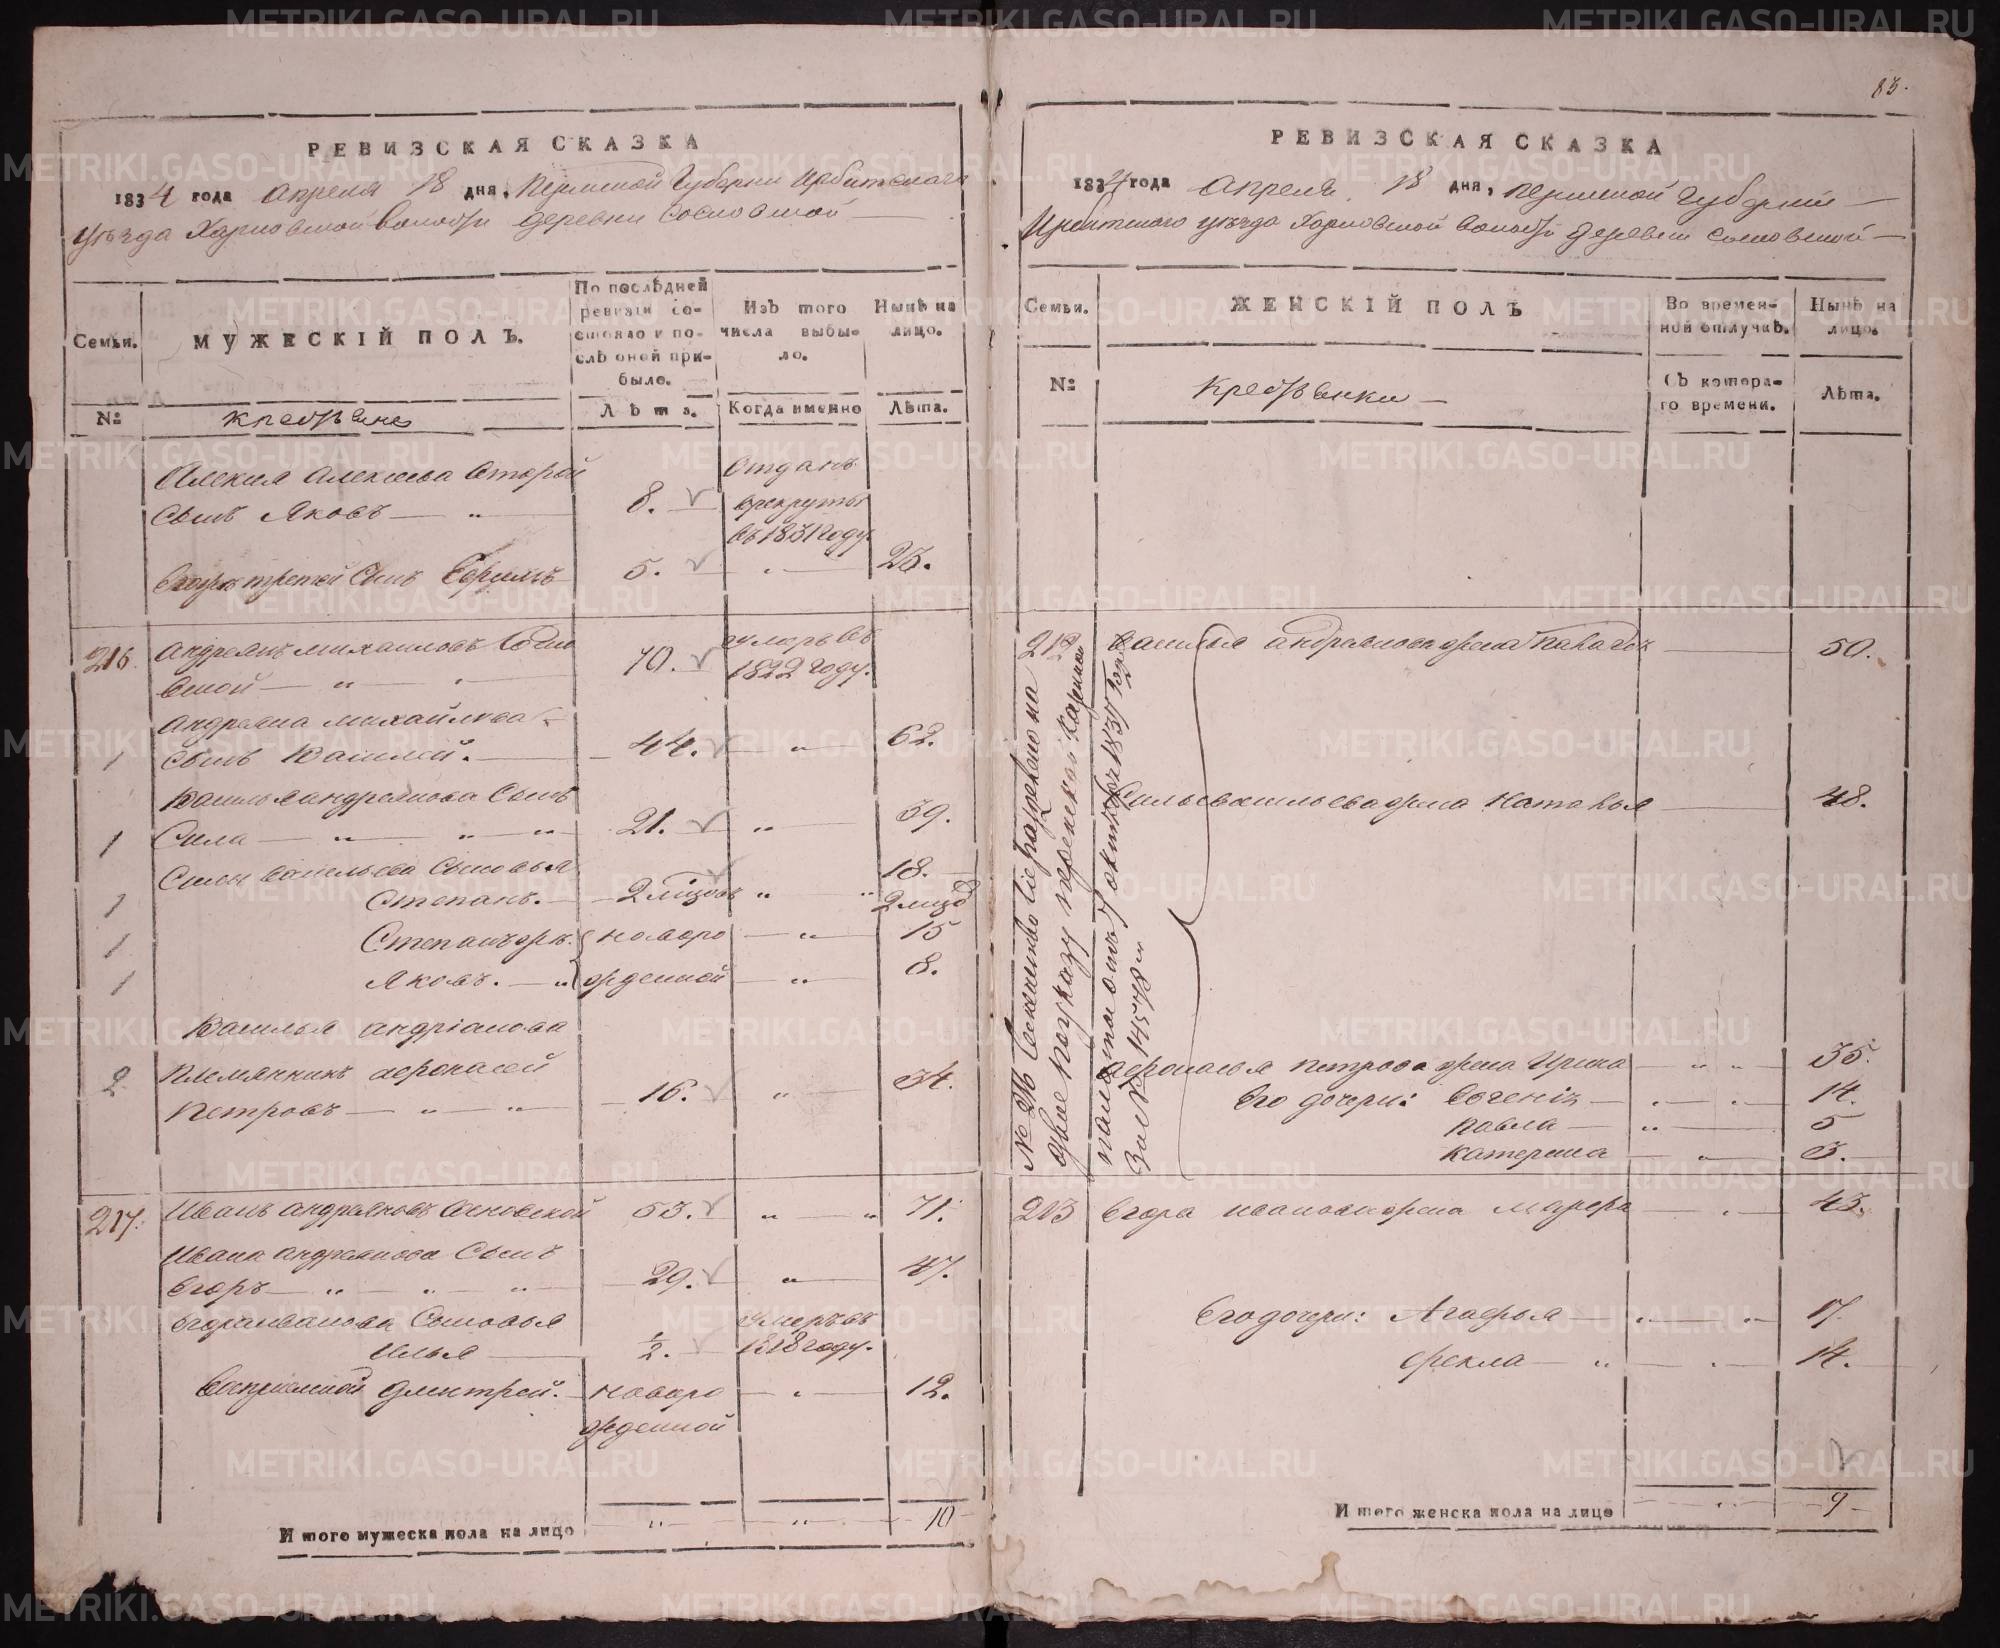 83.
РЕВИЗСКАЯ СКАЗКА
1834 года Апреля 18 дня, Пермской Губернии Ирбитскаго
уезда Харловской волости деревни Сосновской
Семьи.
МУЖЕСКІЙ ПОЛЪ.
По послѣдней ревизіи состояло и послѣ оной прибыло.
Изъ того числа выбыло.
Нынѣ на лицо.
№
Крестьяне
Лѣта.
Когда именно
Лѣта.
Алексея Алексеева второй
сынъ Яковъ — 8. Отданъ
врекруты
въ 1831 году.
третей сынъ Ефимъ 5. — 23.
216. Андреянъ Михаиловъ Сосно
вской — 70. умеръ въ
1822 году.
Андреяна Михайлова
1 сынъ Василей. — 44. — 62.
Василья Андреянова сынъ
1 Сила — 21. — 39.
Силы Васильева сыновья
1 Степанъ. — 2 — 18.
1 — новоро — 15
1 Яковъ. — жденной — 8.
Василья Андріанова
2 племянникъ Афонасей
Петровъ — 16. — 34.
217. Иванъ Андреяновъ Сосновской 53. — 71.
Ивана Андреянова сынъ
Егоръ — 29. — 47.
Егора Иванова сыновья
Илья — 1/2. умеръ въ
1818 году.
Дмитрей. — новоро — 12.
жденной
Итого мужеска пола на лицо — 10
РЕВИЗСКАЯ СКАЗКА
1834 года Апреля 18 дня, Пермской Губерніи
Ирбитского уезда Харловской волости деревни Сосновской
Семьи.
ЖЕНСКІЙ ПОЛЪ
Во временной отлучкѣ.
Нынѣ на лицо.
№
Крестьянки
Съ котораго времени.
Лѣта.
212 Василья Андреянова жена — 50.
Силы Васильева жена Наталья — 48.
Афонасья Петрова жена Ирина — 35.
Его дочери: Евгенія — 14.
Павла — 5
Катерина — 3.
№ 216 семейство сіе разрежено на
двое по указу Пермской Казенной
палаты отъ 7 октября 1831 года
за № 14578
213 Егора Иванова жена Марфа — 43.
Его дочери: Агафья — 17.
Фекла — 14.
Итого женска пола на лицо — 9
METRIKI.GASO-URAL.RU